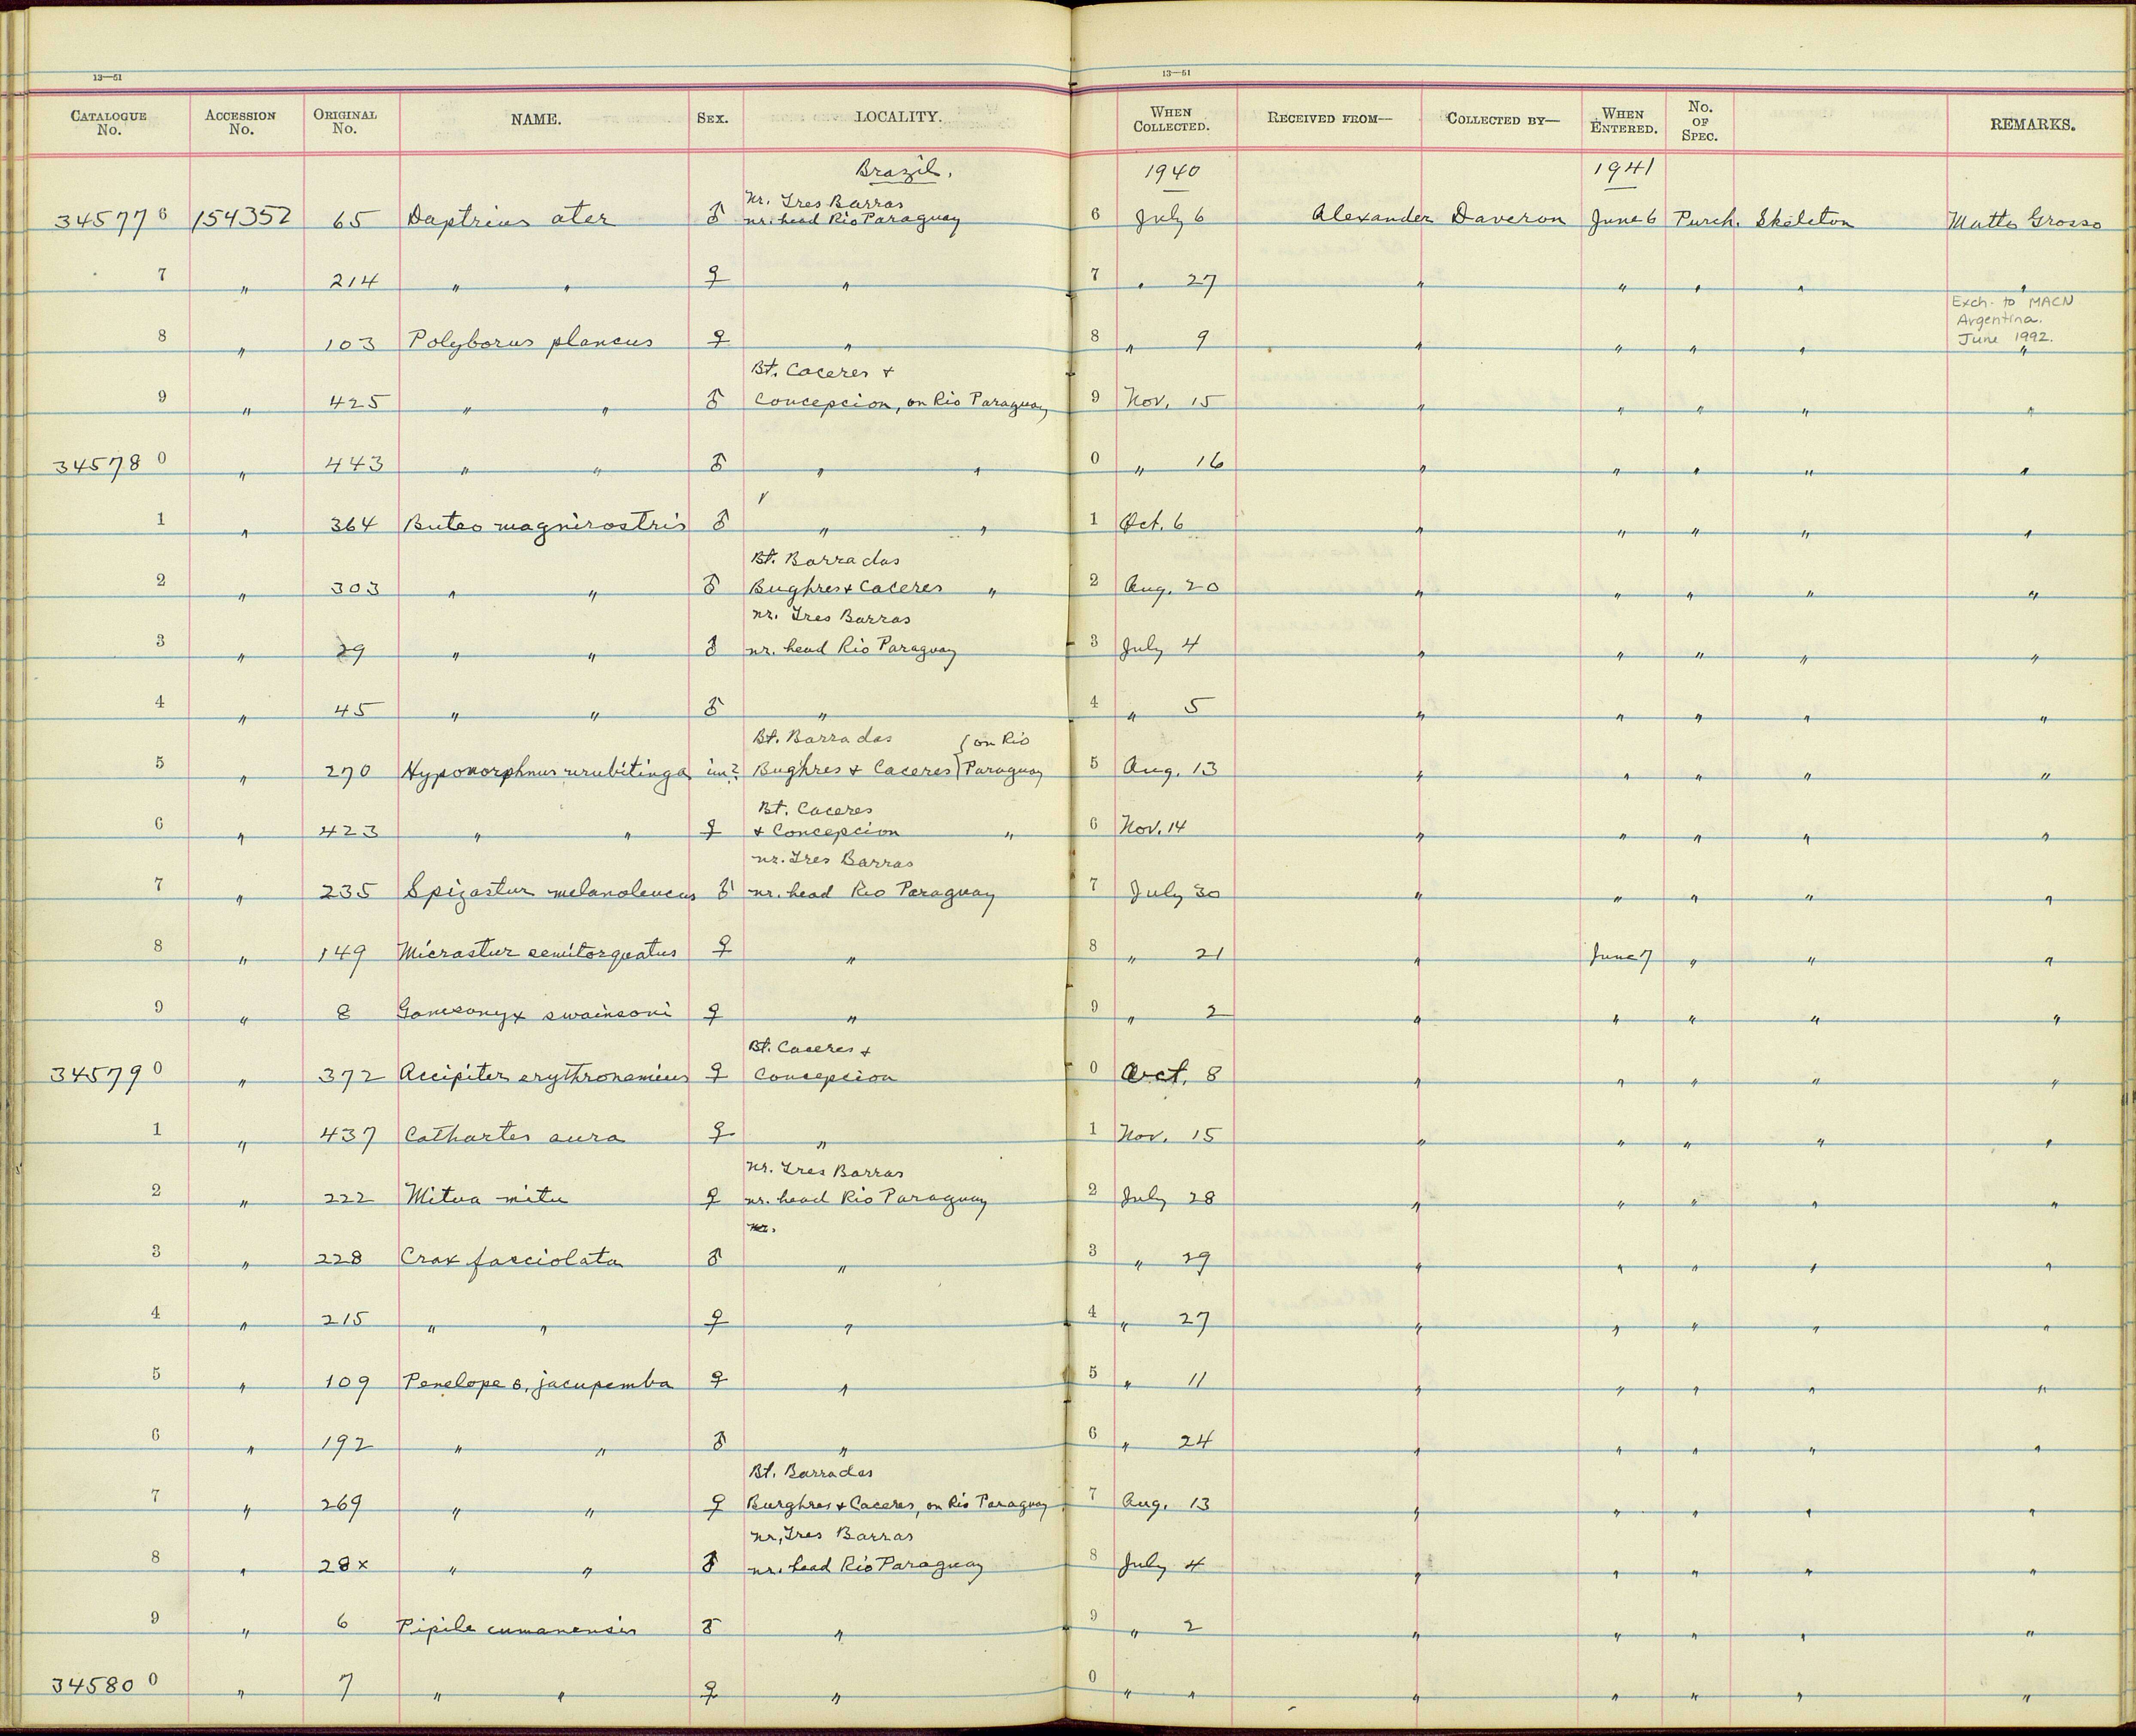 13—51
13—51
CATALOGUE No. ACCESSION No. ORIGINAL No. NAME. SEX. LOCALITY. WHEN COLLECTED. RECEIVED FROM— COLLECTED BY— WHEN ENTERED. No. OF SPEC. REMARKS.
Brazil. 1940 1941
Nr. Tres Barras
345776 154352 65 Daptrius ater ♂ nr. head Rio Paraguay 6 July 6 Alexander Daveron June 6 Purch. Skeleton Matto Grosso
7 " 214 " " ♀ " 7 " 27 " " " " "
Exch. to MACN
Argentina.
June 1992.
8 " 103 Polyborus plancus ♀ " 8 " 9 " " " " "
Bt. Caceres +
9 " 425 " " ♂ Concepcion, on Rio Paraguay 9 Nov. 15 " " " " "
345780 " 443 " " ♂ " " 0 " 16 " " " " "
1 " 364 Buteo magnirostris ♂ " " 1 Oct. 6 " " " " "
Bt. Barra das
2 " 303 " " ♂ Bughres + Caceres " 2 Aug. 20 " " " " "
nr. Tres Barras
3 " 29 " " ♂ nr. head Rio Paraguay 3 July 4 " " " " "
4 " 45 " " ♂ " 4 " 5 " " " " "
Bt. Barra das { on Rio
5 " 270 Hypomorphnus urubitinga im? Bughres + Caceres } Paraguay 5 Aug. 13 " " " " "
Bt. Caceres
6 " 423 " " ♀ + Concepcion " 6 Nov. 14 " " " " "
nr. Tres Barras
7 " 235 Spizastur melanoleucus ♂ nr. head Rio Paraguay 7 July 30 " " " " "
8 " 149 Micrastur semitorquatus ♀ " 8 " 21 " June 7 " " "
9 " 8 Gampsonyx swainsoni ♀ " 9 " 2 " " " " "
Bt. Caceres +
345790 " 372 Accipiter erythronemius ♀ Concepcion 0 Oct. 8 " " " " "
1 " 437 Cathartes aura ♀ " 1 Nov. 15 " " " " "
Nr. Tres Barras
2 " 222 Mitua mitu ♀ nr. head Rio Paraguay 2 July 28 " " " " "
nr.
3 " 228 Crax fasciolata ♂ " 3 " 29 " " " " "
4 " 215 " " ♀ " 4 " 27 " " " " "
5 " 109 Penelope s. jacupemba ♀ " 5 " 11 " " " " "
6 " 192 " " ♂ " 6 " 24 " " " " "
Bt. Barra das
7 " 269 " " ♀ Burghres + Caceres, on Rio Paraguay 7 Aug. 13 " " " " "
nr. Tres Barras
8 " 28x " " ♂ nr. head Rio Paraguay 8 July 4 " " " " "
9 " 6 Pipile cumanensis ♂ " 9 " 2 " " " " "
345800 " 7 " " ♀ " 0 " " " " " " "